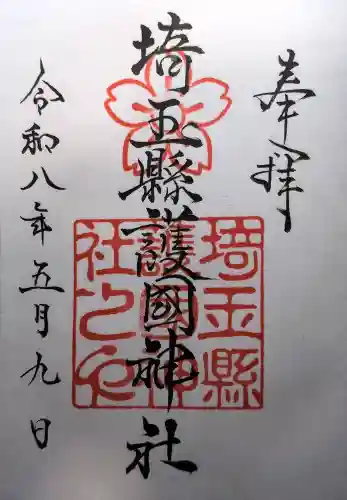 奉拝
埼玉縣護國神社
令和八年五月九日
埼玉縣
護國神
社之印